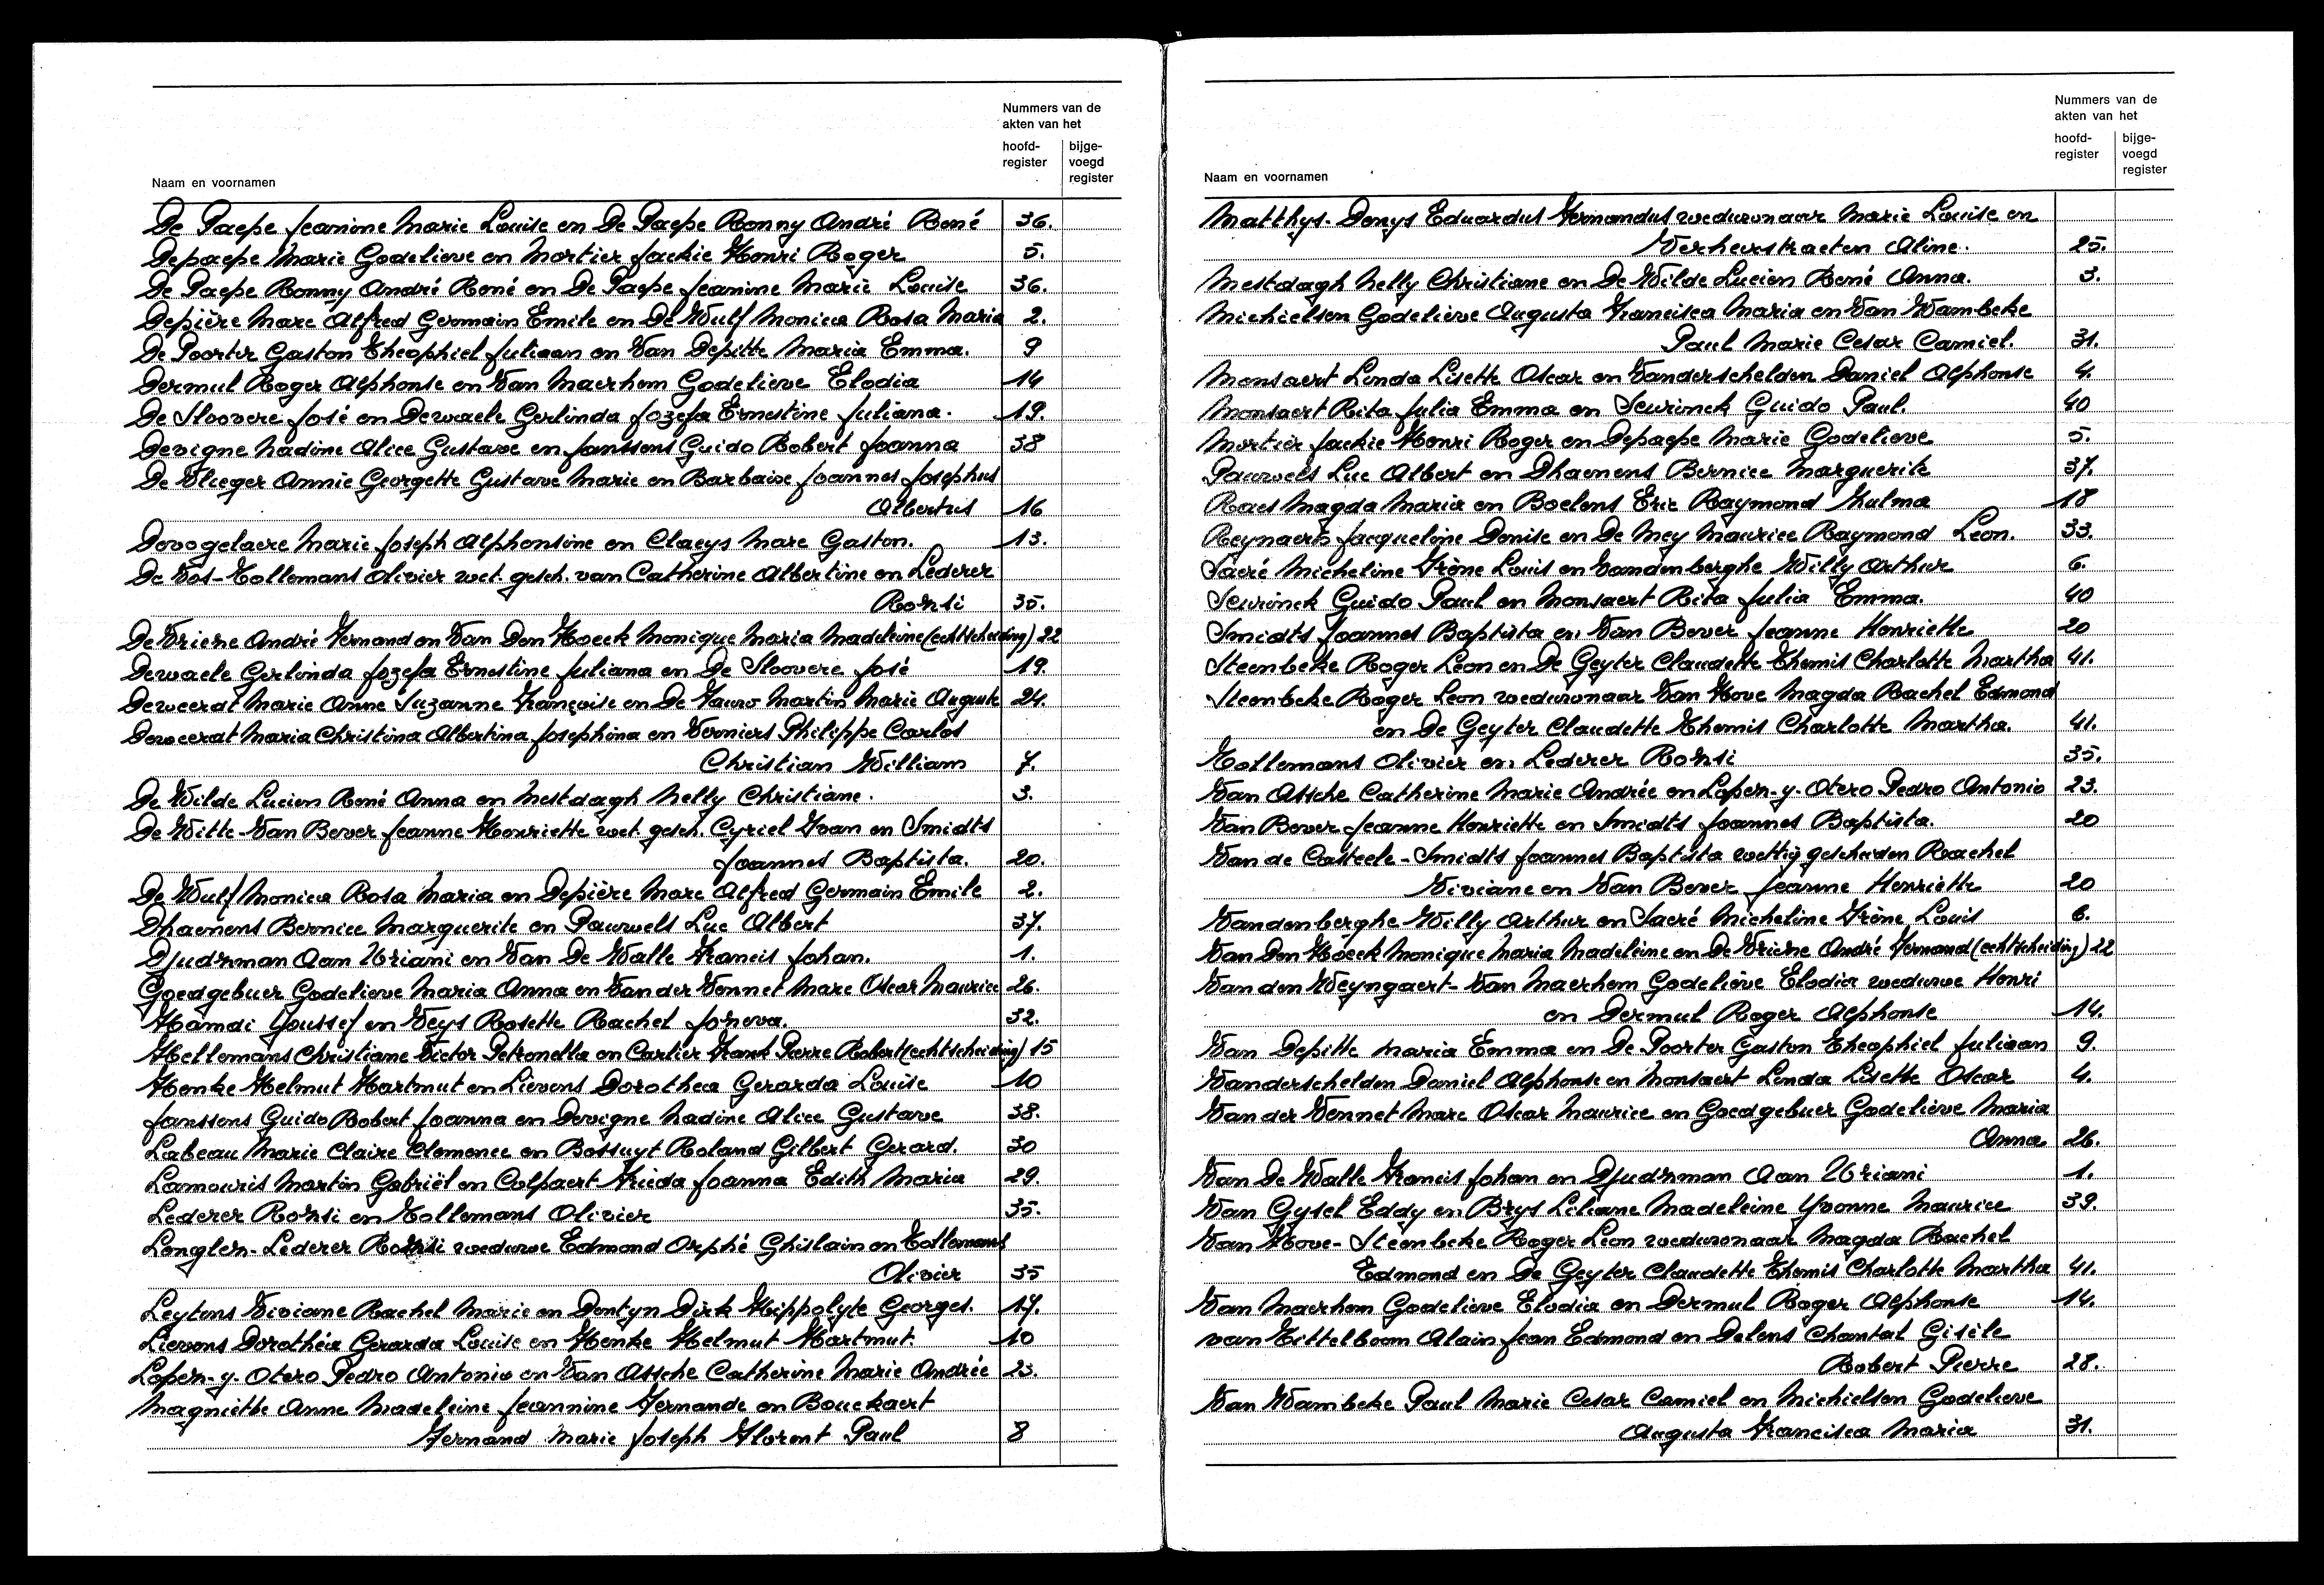 Nummers van de
akten van het
hoofd- bijge-
register voegd
register
Naam en voornamen
De Paepe Jeanine Marie Louise en De Paepe Ronny André René 36.
Depaepe Marie Godelieve en Mortier Jackie Henri Roger 5.
De Paepe Ronny André René en De Paepe Jeanine Marie Louise 36.
Depière Marc Alfred Germain Emile en De Wulf Monica Rosa Maria 2.
De Poorter Gaston Theophiel Juliaan en Van Depitte Maria Emma. 9
Dermul Roger Alphonse en Van Maerhem Godelieve Elodia 14
De Sloovere José en Dewaele Gerlinda Jozefa Ernestine Juliana. 19.
Devigne Nadine Alice Gustave en Janssens Guido Robert Joanna 38
De Vlieger Annie Georgette Gustave Marie en Barbaise Joannes Josephus
Albertus 16
Devogelaere Marie Joseph Alphonsine en Claeys Marc Gaston. 13.
De Vos-Tollemans Olivier wet. gesch. van Catherine Albertine en Lederer
Rozsi 35.
De Vriese André Fernand en Van Den Hoeck Monique Maria Madeleine (echtscheiding) 22
Dewaele Gerlinda Jozefa Ernestine Juliana en De Sloovere José 19.
Deweerdt Marie Anne Suzanne Françoise en De Fauw Martin Marie August 24.
Deweerdt Maria Christina Albertina Josephina en Verniers Philippe Carlos
Christian William 7.
De Wilde Lucien René Anna en Mestdagh Nelly Christiane. 3.
De Witte-Van Bever Jeanne Henriette wet. gesch. Cyriel Ivan en Smidts
Joannes Baptista. 20.
De Wulf Monica Rosa Maria en Depière Marc Alfred Germain Emile 2.
Dhaenens Bernice Marguerite en Pauwels Luc Albert 37.
Djudzman Aan Uriani en Van De Walle Francis Johan. 1.
Goedgebuer Godelieve Maria Anna en Van der Vennet Marc Oscar Maurice 26.
Hamdi Youssef en Veys Rosette Rachel 32.
Hellemans Christiane Victor Petronella en Cartier Frank Pierre Robert (echtscheiding) 15
Henke Helmut Hartmut en Lievens Dorothea Gerarda Louise 10
Janssens Guido Robert Joanna en Devigne Nadine Alice Gustave 38.
Labeau Marie Claire Clemence en Bossuyt Roland Gilbert Gerard. 30
Lamouris Martin Gabriël en Colpaert Frieda Joanna Edith Maria 29.
Lederer Rozsi en Tollemans Olivier 35.
Lenglez-Lederer Rozsi weduwe Edmond Orphé Ghislain en Tollemans
Olivier 35
Leytens Viviane Rachel Marie en Dentyn Dirk Hippolyte Georges. 17.
Lievens Dorothéa Gerarda Louise en Henke Helmut Hartmut. 10
Lopez-y-Otero Pedro Antonio en Van Assche Catherine Marie Andrée 23.
Magniette Anne Madeleine Jeannine Fernande en Bouckaert
Fernand Marie Joseph Florent Paul 8
Nummers van de
akten van het
hoofd- bijge-
register voegd
register
Naam en voornamen
Matthys-Denys Eduardus Fernandus weduwnaar Marie Louise en
Verheustraeten Aline. 25.
Mestdagh Nelly Christiane en De Wilde Lucien René Anna. 3.
Michielsen Godelieve Augusta Francisca Maria en Van Wambeke
Paul Marie Cesar Camiel. 31.
Monsaert Linda Lisette Oscar en Vanderschelden Daniel Alphonse 4.
Monsaert Rita Julia Emma en Seurinck Guido Paul. 40
Mortier Jackie Henri Roger en Depaepe Marie Godelieve 5.
Pauwels Luc Albert en Dhaenens Bernice Marguerite 37.
Raes Magda Maria en Boelens Eric Raymond Zulma 18
Reynaert Jacqueline Denise en De Mey Maurice Raymond Leon. 33.
Sacré Micheline Irène Louis en Vandenberghe Willy Arthur 6.
Seurinck Guido Paul en Monsaert Rita Julia Emma. 40
Smidts Joannes Baptista en Van Bever Jeanne Henriette 20
Steenbeke Roger Leon en De Geyter Claudette Themis Charlotte Martha 41.
Steenbeke Roger Leon weduwnaar Van Hove Magda Rachel Edmond
en De Geyter Claudette Themis Charlotte Martha. 41.
Tollemans Olivier en Lederer Rozsi 35.
Van Assche Catherine Marie Andrée en Lopez-y-Otero Pedro Antonio 23.
Van Bever Jeanne Henriette en Smidts Joannes Baptista. 20
Van de Casteele-Smidts Joannes Baptista wettig gescheiden Rachel
Viviane en Van Bever Jeanne Henriette 20
Vandenberghe Willy Arthur en Sacré Micheline Irène Louis 6.
Van Den Hoeck Monique Maria Madeleine en De Vriese André Fernand (echtscheiding) 22
Van den Weyngaert-Van Maerhem Godeliève Elodia weduwe Henri
en Dermul Roger Alphonse 14.
Van Depitte Maria Emma en De Poorter Gaston Theophiel Juliaan 9.
Vanderschelden Daniel Alphonse en Monsaert Linda Lisette Oscar 4.
Van der Vennet Marc Oscar Maurice en Goedgebuer Godelieve Maria
Anna 26.
Van De Walle Francis Johan en Djudzman Aan Uriani 1.
Van Gysel Eddy en Brys Liliane Madeleine Yvonne Maurice 39.
Van Hove-Steenbeke Roger Leon weduwnaar Magda Rachel
Edmond en De Geyter Claudette Themis Charlotte Martha 41.
Van Maerhem Godelieve Elodia en Dermul Roger Alphonse 14.
van Tittelboom Alain Jean Edmond en Delens Chantal Gisèle
Robert Pierre 28.
Van Wambeke Paul Marie Cesar Camiel en Michielsen Godelieve
Augusta Francisca Maria 31.